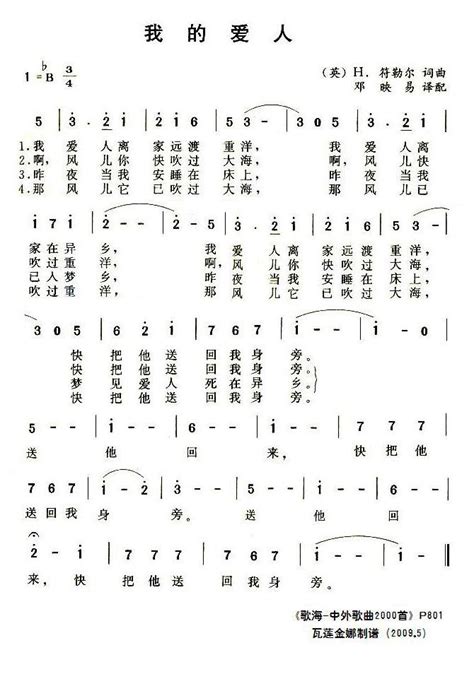 我的爱人
1=♭B 3/4
(英)H. 符勒尔 词曲
邓映易 译配
5 | 3· 2 1 | 2 1 6 | 5 3 | 5 - 3 | 3 0 5 | 3· 2 1
1.我 爱 人离 家远渡 重洋, 我 爱 人离
2.啊, 风 儿你 快吹过 大海, 啊, 风 儿快
3.昨 夜 当我 安睡在 床上, 昨 夜 当我
4.那 风 儿它 已吹过 大海, 那 风 儿已
1 7 1 | 2 - - | 2 - 5 | 3· 2 1 | 2 1 6 | 5 3
家在异 乡, 我 爱 人离 家远渡 重洋,
吹过重 洋, 啊, 风 儿你 快吹过 大海,
已入梦 乡, 昨 夜 当我 安睡在 床上,
吹过重 洋, 那 风 儿它 已吹过 大海,
3 0 5 | 6· 2 1 | 7 6 7 | 1 - - | 1 0
快 把 他送 回我身 旁。
快 把 他送 回我身 旁。
梦 见 爱人 死在异 乡。
快 把 他送 回我身 旁。
5 - - | 1 - - | 6 - - | 2 - 1 | 7 7 7
送 他 回 来, 快把他
7 6 7 | 1 - 2 | 3 - - | 5 - - | 1 - - | 6 - -
送回我 身 旁。 送 他 回
2 - 1 | 7 7 7 | 7 6 7 | 1 - - | 1 0
来, 快 把他送 回我身 旁。
《歌海-中外歌曲2000首》P801
瓦莲金娜制谱(2009.5)